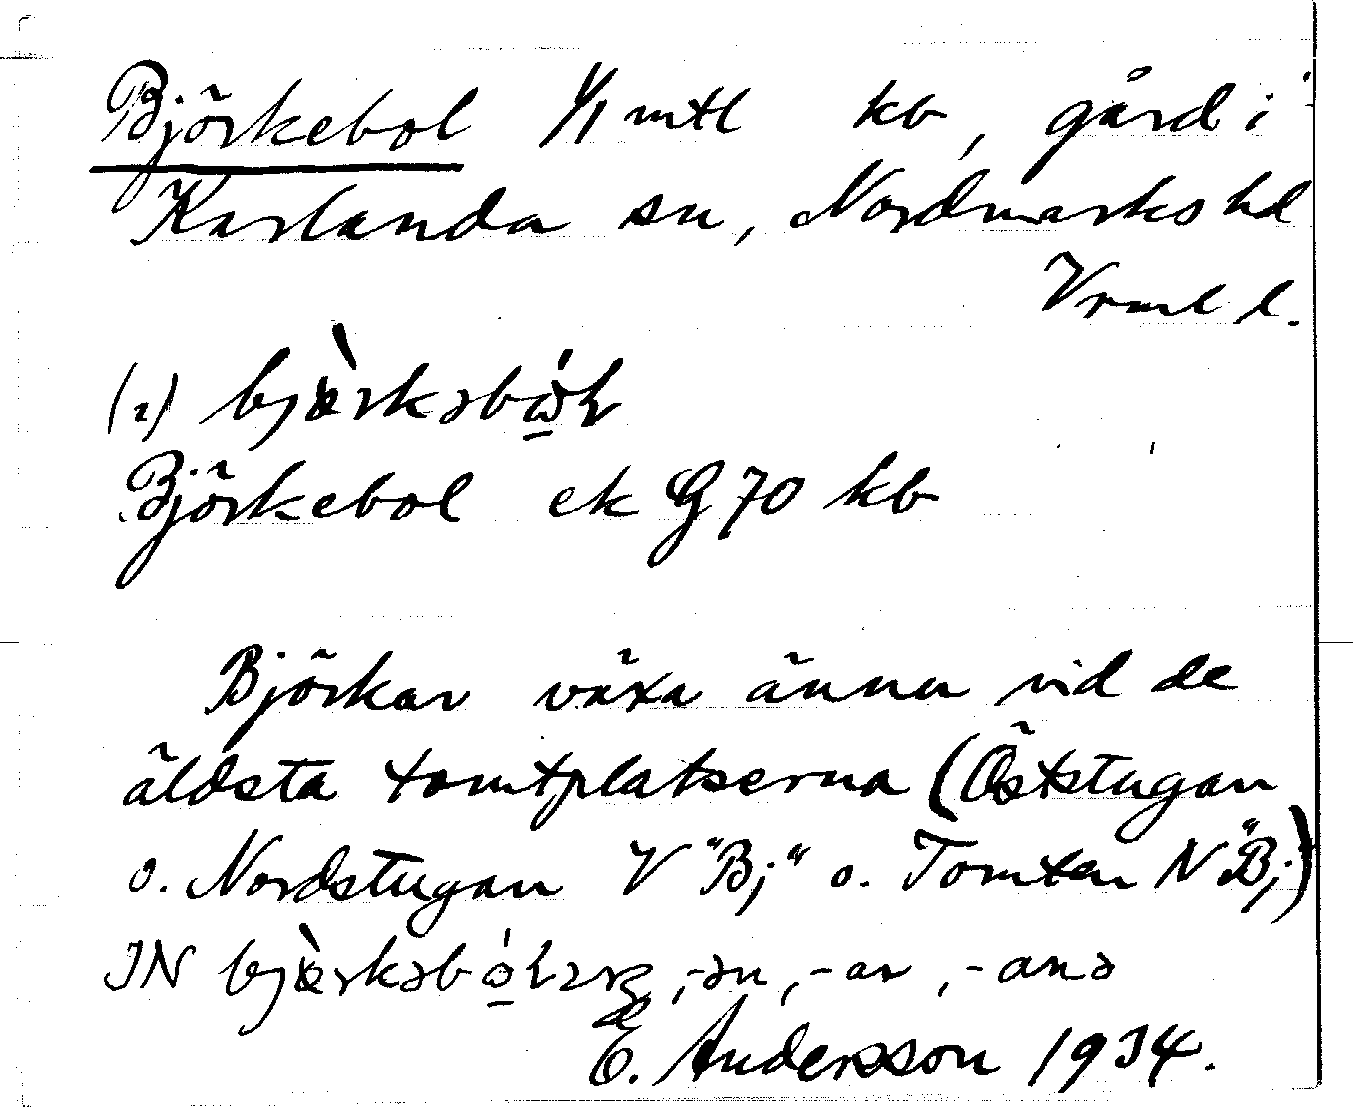 Björkebol 1/1 mtl kb, gård i
Karlanda sn, Nordmarks hd
Vrml l.
(2) bjæ̀rkəbó̱ɫ
Björkebol ek G 70 kb
Björkar växa ännu vid de
äldsta tomtplatserna (Öststugan
o. Nordstugan V "Bj" o. Tomten N "Bj)
IN bjæ̀rkəbó̱ɫ, -ən, -ar, -anə
E. Andersson 1934.